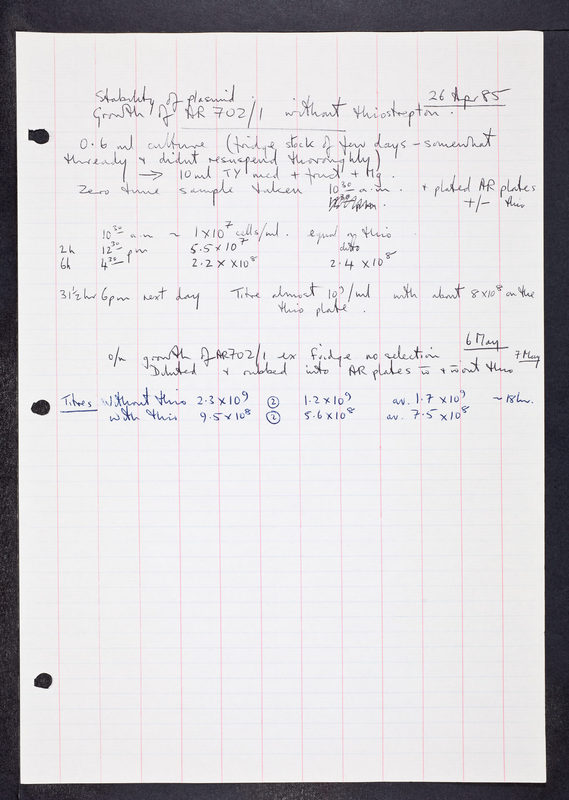 Stability of plasmid. 26 Apr 85
Growth of AR702/1 without thiostrepton.
0.6 ml culture (fridge stock of few days - somewhat
thready & didnt resuspend thoroughly)
→ 10ml TY med + fruct + Mg.
Zero time sample taken 10³⁰ a.m. & plated AR plates
+/- thio
10³⁰ a.m ~ 1×10⁷ cells/ml. equal on thio.
2h 12³⁰ pm 5.5×10⁷ ditto
6h 4³⁰ pm 2.2 × ×10⁸ 2.4 ×10⁸
31½hr 6pm next day Titre almost 10⁹/ml with about 8×10⁸ on the
thio plate.
6 May
o/n growth of AR702/1 ex fridge no selection
Diluted & rubbed into AR plates w̄ & w̄out thio 7 May
Titres Without thio 2.3×10⁹ ② 1.2×10⁹ av. 1.7×10⁹ ~18hr.
with thio 9.5×10⁸ ② 5.6×10⁸ av. 7.5×10⁸